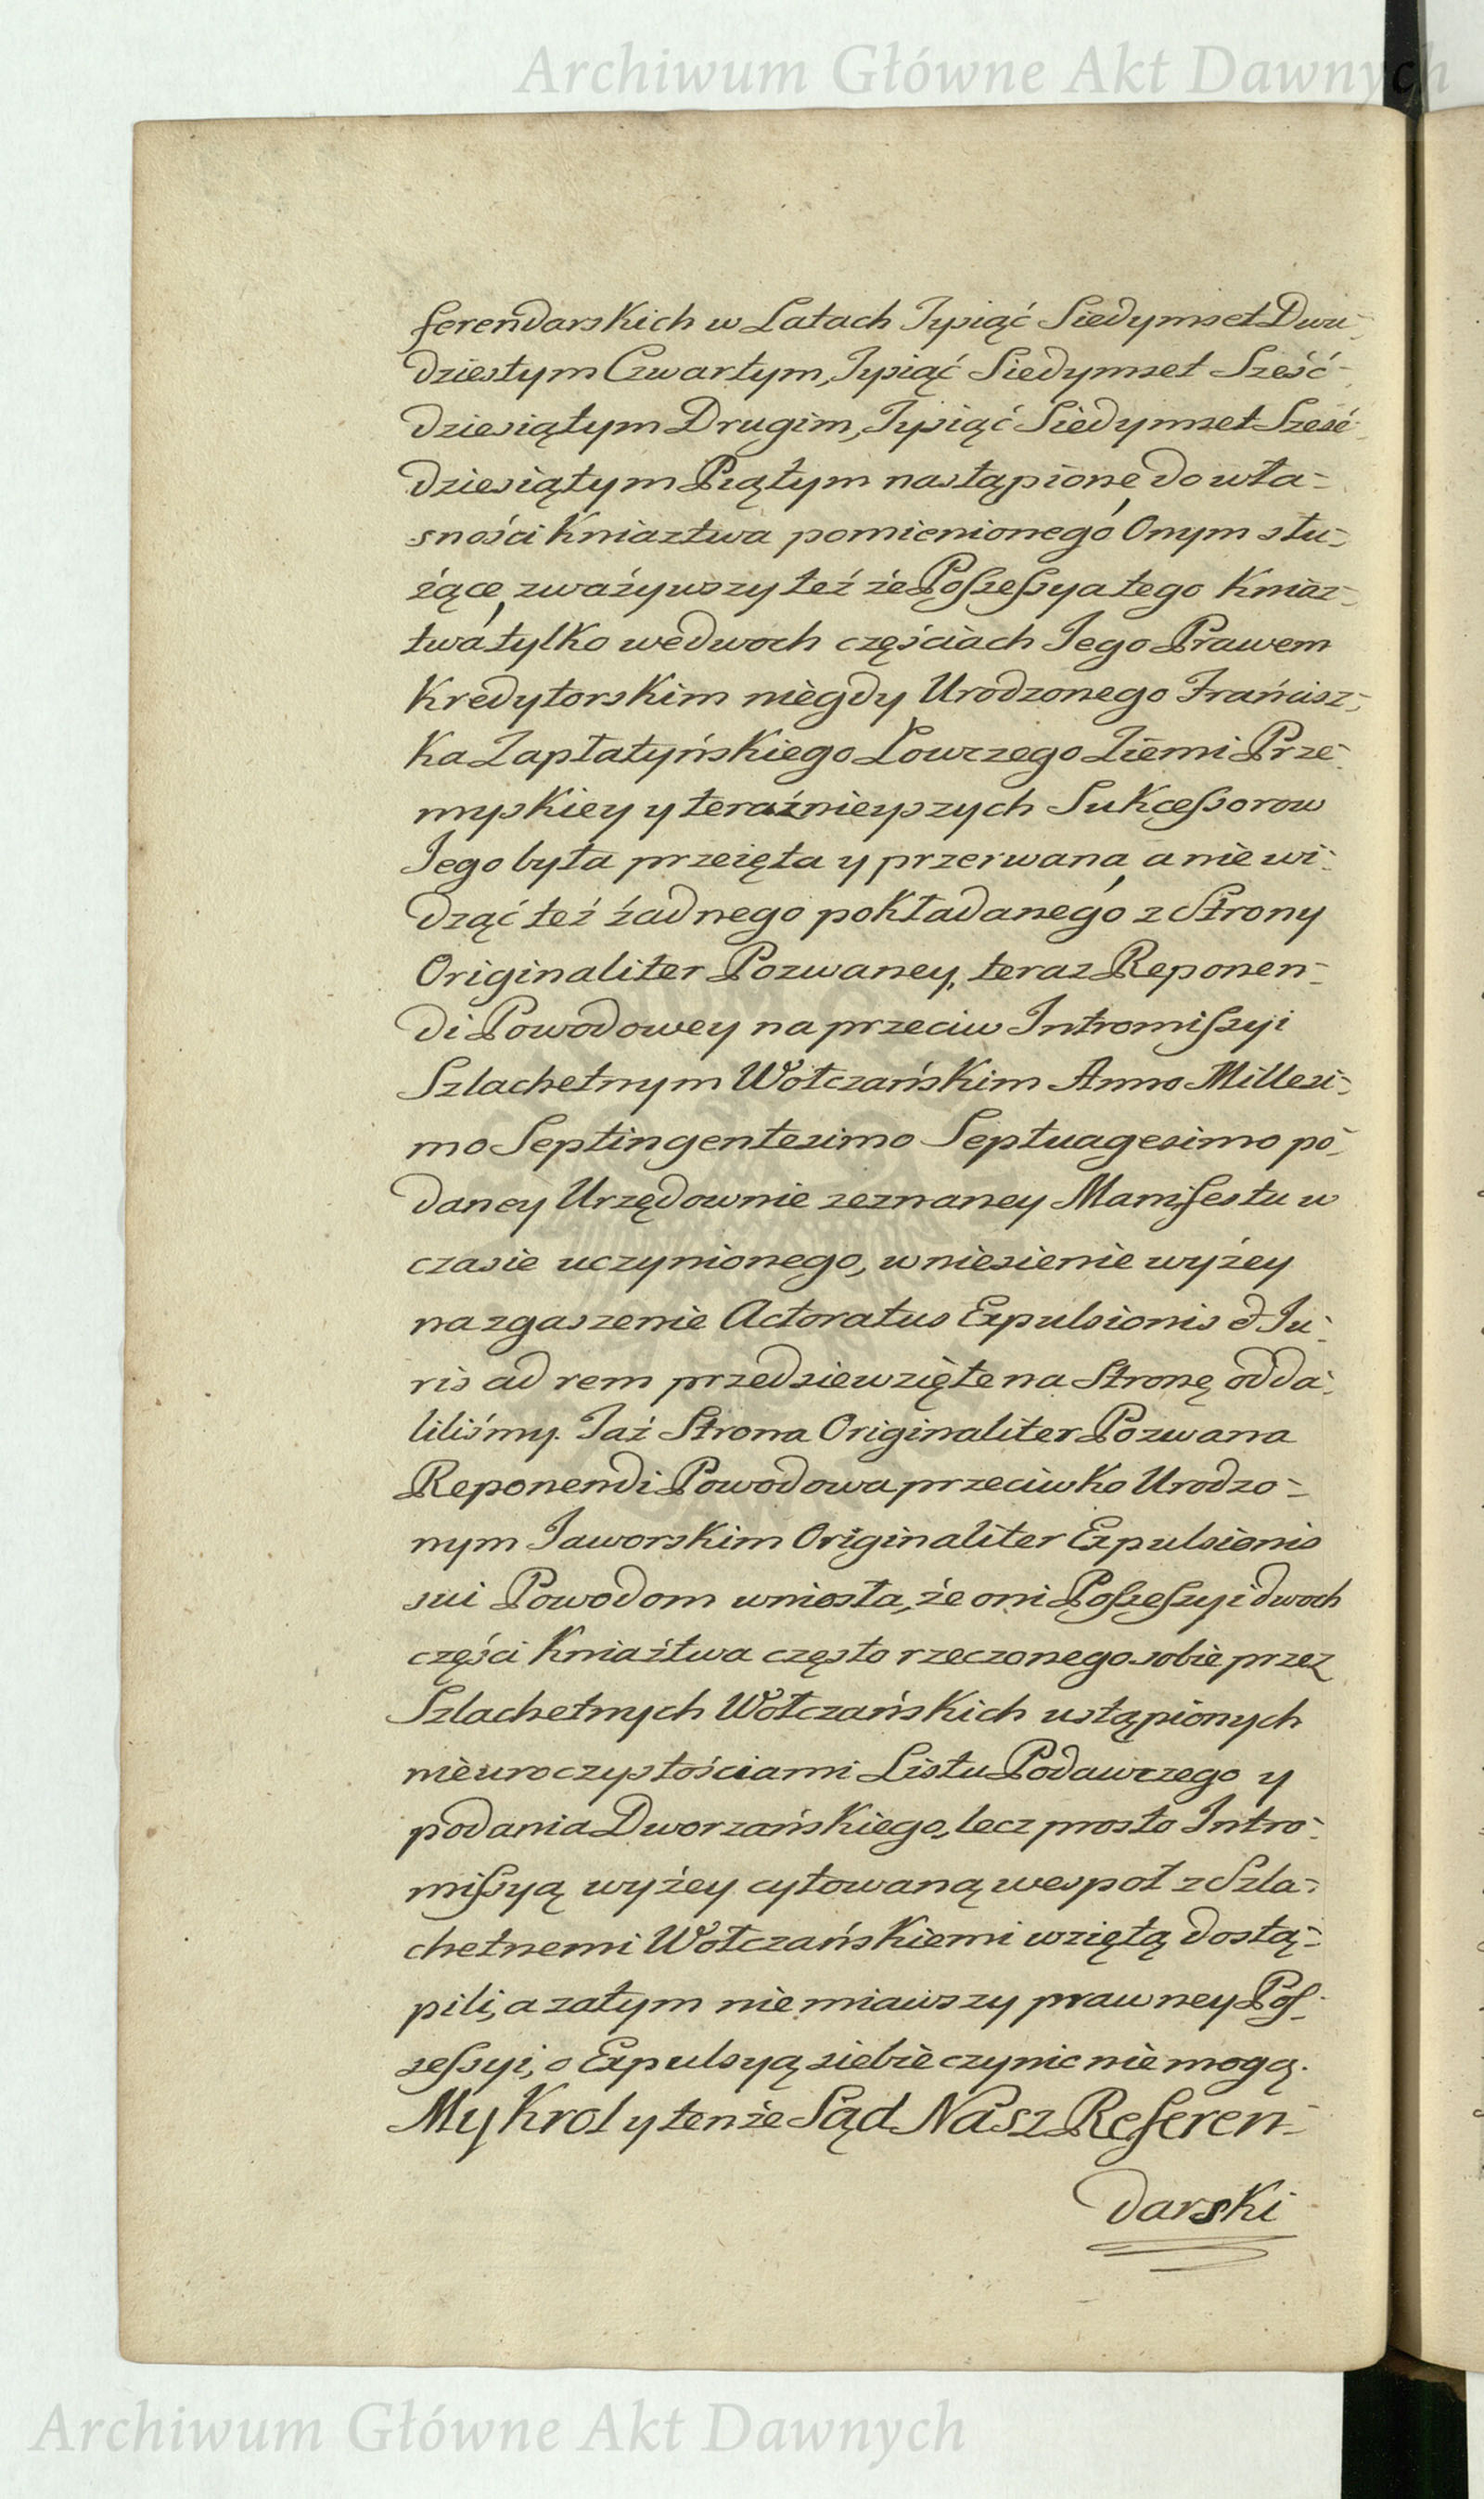 Archiwum Główne Akt Dawnych
ferendarskich w Latach Tysiąć Siedymset Dwu-
dziestym Czwartym, Tysiąć Siedymset Sześć-
dziesiątym Drugim, Tysiąć Siedymset Sześć-
dziesiątym Piątym nastąpione, do wła-
sności Kniaztwa pomienionego Onym słu-
żące, zważywszy też że Possessya tego Kniaz-
twa tylko we dwoch częściach Jego Prawem
Kredytorskim niegdy Urodzonego Franćisz-
ka Zapłatyńskiego Łowczego Ziemi Prze-
myskiey y teraźnieyszych Sukcessorow
Jego była przeięta y przerwana, a nie wi-
dząć też żadnego pokładanego z Strony
Originaliter Pozwaney, teraz Reponen-
di Powodowey na przeciw Intromissyi
Szlachetnym Wołczańskim Anno Millesi-
mo Septingentesimo Septuagesimo po-
daney Urzędownie zeznaney Manifestu w
czasie uczynionego, wniesienie wyżey
na zgaszenie Actoratus Expulsionis d Ju-
ris ad rem przedsiewzięte na Stronę odda-
liliśmy. Taż Strona Originaliter Pozwana
Reponendi Powodowa przeciwko Urodzo-
nym Jaworskim Originaliter Expulsionis
sui Powodom wniosła, że oni Possessyi dwoch
części Kniaźtwa często rzeczonego sobie przez
Szlachetnych Wołczańskich ustąpionych
nie uroczystościami Listu Podawczego y
podania Dworzańskiego, lecz prosto Intro-
missyą wyżey cytowaną wespoł z Szla-
chetnemi Wołczańskiemi wziętą dostą-
pili, a zatym nie miawszy prawney Pos-
sessyi, o Expulsyą siebie czynic nie mogą.
My Krol y tenże Sąd Nasz Referen-
darski
Archiwum Główne Akt Dawnych